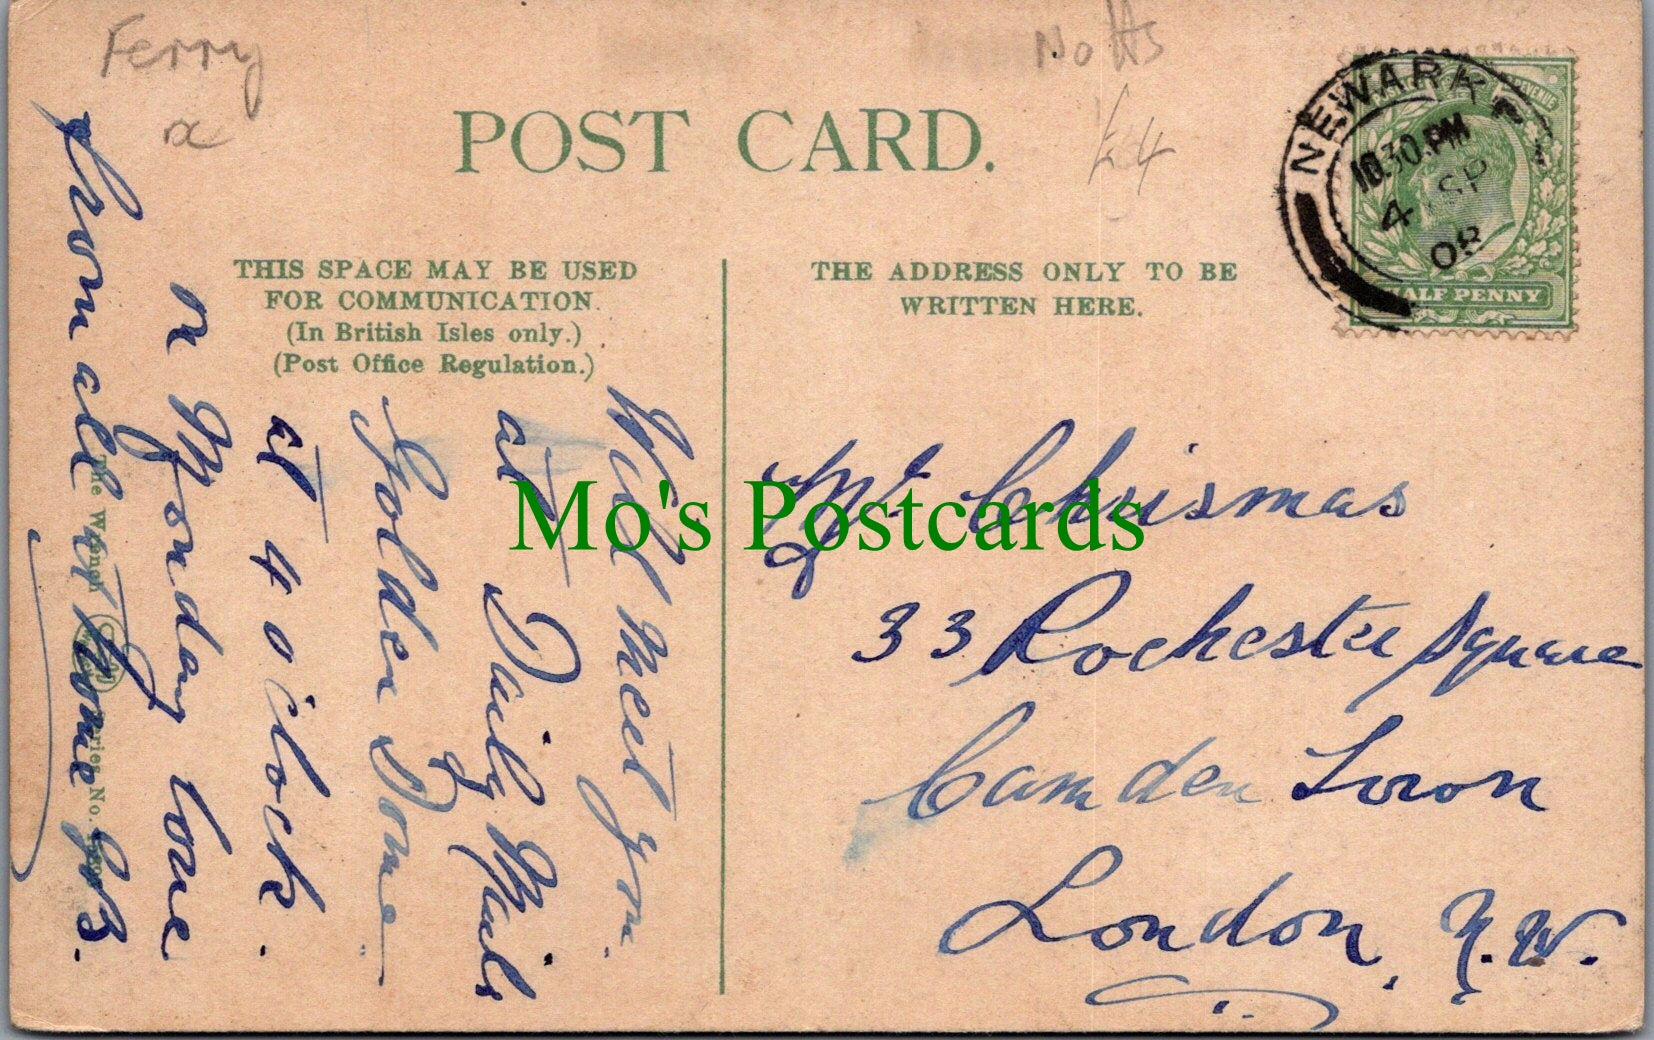 Ferry
x
Notts
£4
POST CARD.
THIS SPACE MAY BE USED
FOR COMMUNICATION.
(In British Isles only.)
(Post Office Regulation.)
THE ADDRESS ONLY TO BE
WRITTEN HERE.
NEWARK
10.30.PM
4 SP
08
HALF PENNY
Will meet you
at Daily Mail
Golden Dome
at 4 o'clock.
on Monday love
from all at home GB.
Mr Chrismas
33 Rochester Square
Camden Town
London, N.W.
The Wrench Series No.
Mo's Postcards